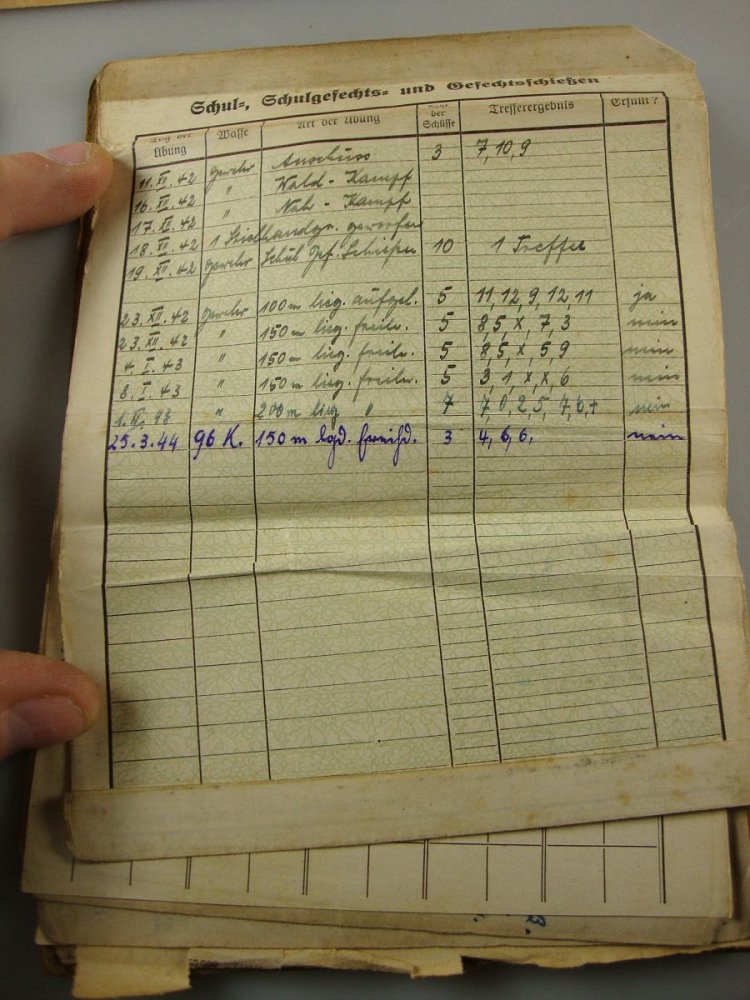 Schul-, Schulgefechts- und Gefechtsschießen
Tag der Übung Waffe Art der Übung Zahl der Schüsse Trefferergebnis Erfüllt?
11. XII. 42 Gewehr Anschuss 3 7, 10, 9
16. XII. 42 " Wald - Kampf
17. XII. 42 " Nah - Kampf
18. XII. 42 1 Stielhandgr. geworfen
19. XII. 42 Gewehr Schul Gef. Schießen 10 1 Treffer
23. XII. 42 Gewehr 100 m lieg. aufgel. 5 11, 12, 9, 12, 11 ja
23. XII. 42 " 150 m lieg. freih. 5 8, 5, x, 7, 3 nein
4. I. 43 " 150 m lieg. freih. 5 8, 5, x, 5, 9 nein
8. I. 43 " 150 m lieg. freih. 5 3, 1, x, x, 6 nein
" 200 m lieg " 7 7, 0, 2, 5, 7, 6, + nein
25. 3. 44 96 K. 150 m lgd. freihd. 3 4, 6, 6, nein